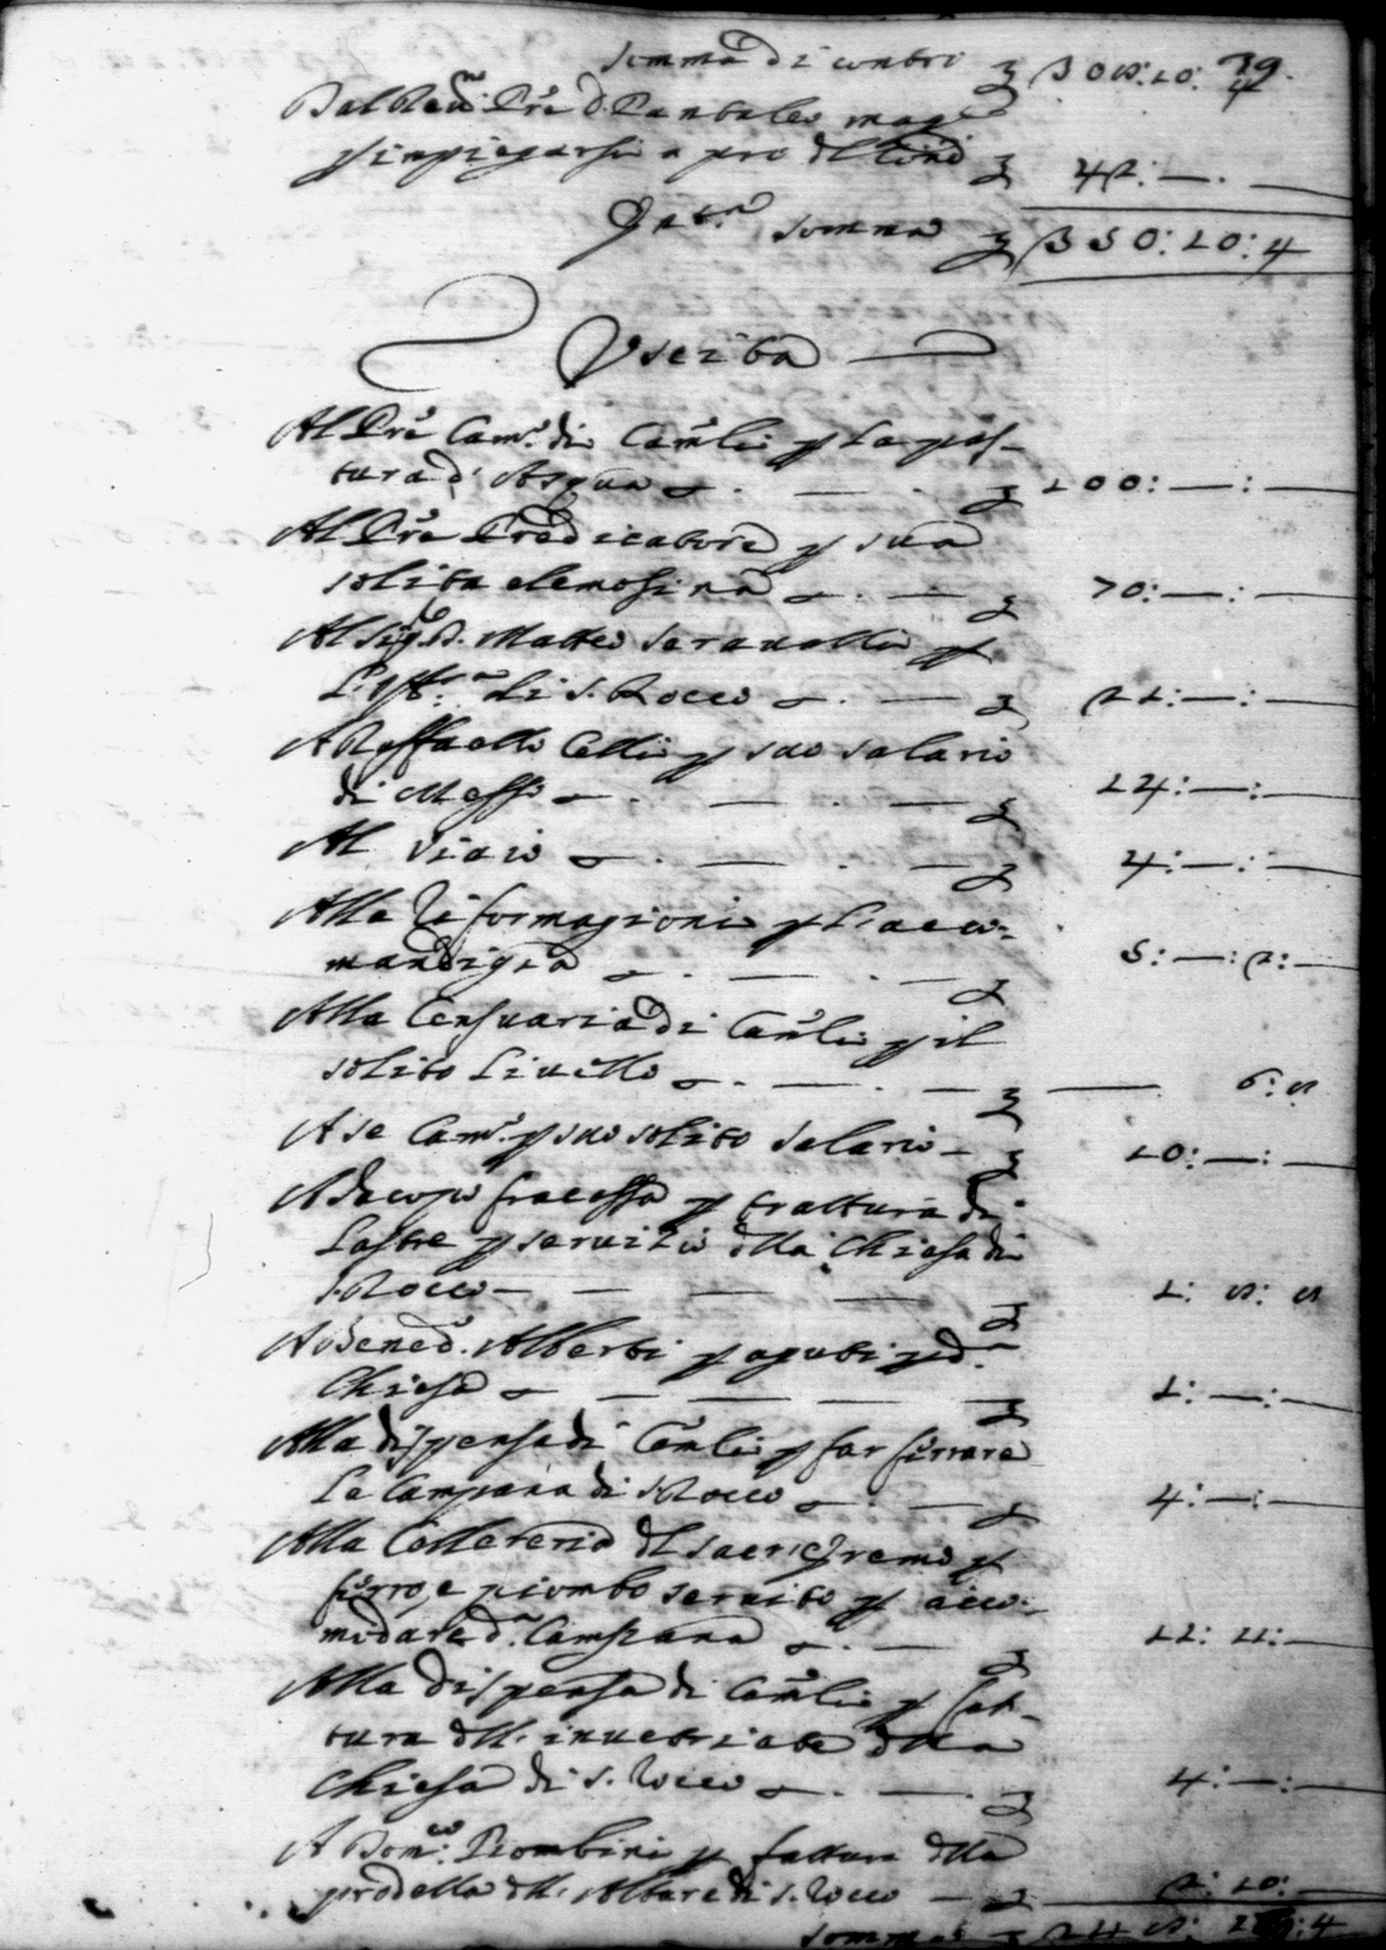 somma di contri £ 308: 10: 4
39
Dal Rev.mo P're D. Pantaleo
p impiegarsi a pro d'l £ 42: — . —
Fatta somma £ 350: 10: 4
Uscita
Al P're Cam.o di Cam'li p la pas-
tura d' Asqua — . — . £ 100: — : —
Al P're Predicatore p sua
solita elemosina — . — £ 70: — : —
Al Sig.r D. Matteo Seravalli p
L'Uff.ra di S. Rocco — . — £ 21: — : —
A Raffaello Celli p suo salario
di Messo — . — . — £ 14: — : —
Al Viaio — . — . — £ 4: — : —
Alla Riformagioni p l'acco-
mandigia — . — . — £ 5: — : 2: —
Alla Censuaria di Cam'li p il
solito livello — . — . — £ — 6: 8
A se Cam.o p suo solito salario — £ 10: — : —
A Jacopo fracassa p trattura di
lastre p servizio d'lla Chiesa di
S. Rocco — — — — £ 1: 8: 8
A Bened.o Alberti p aguti p d.a
Chiesa — — — — £ 1: — : —
Alla dispensa di Cam'li p far ferrare
la Campana di S. Rocco — . — £ 4: — : —
Alla Celleteria d'l Sacr'Eremo p
ferro, e piombo servito p acco-
modare d.a Campana — . — £ 11: 11: —
Alla dispensa di Cam'li p fat-
tura d'll' invetriate d'lla
Chiesa di S. Rocco — . — . £ 4: — : —
A Dom.co Piombini p fattura d'lla
predella d'll' Altare di S. Rocco — £ 2: 10: —
somma £